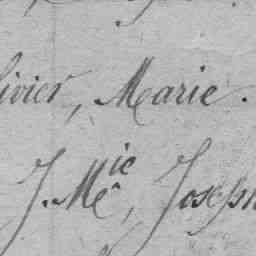 livier, Marie.
J. Mie, Joseph